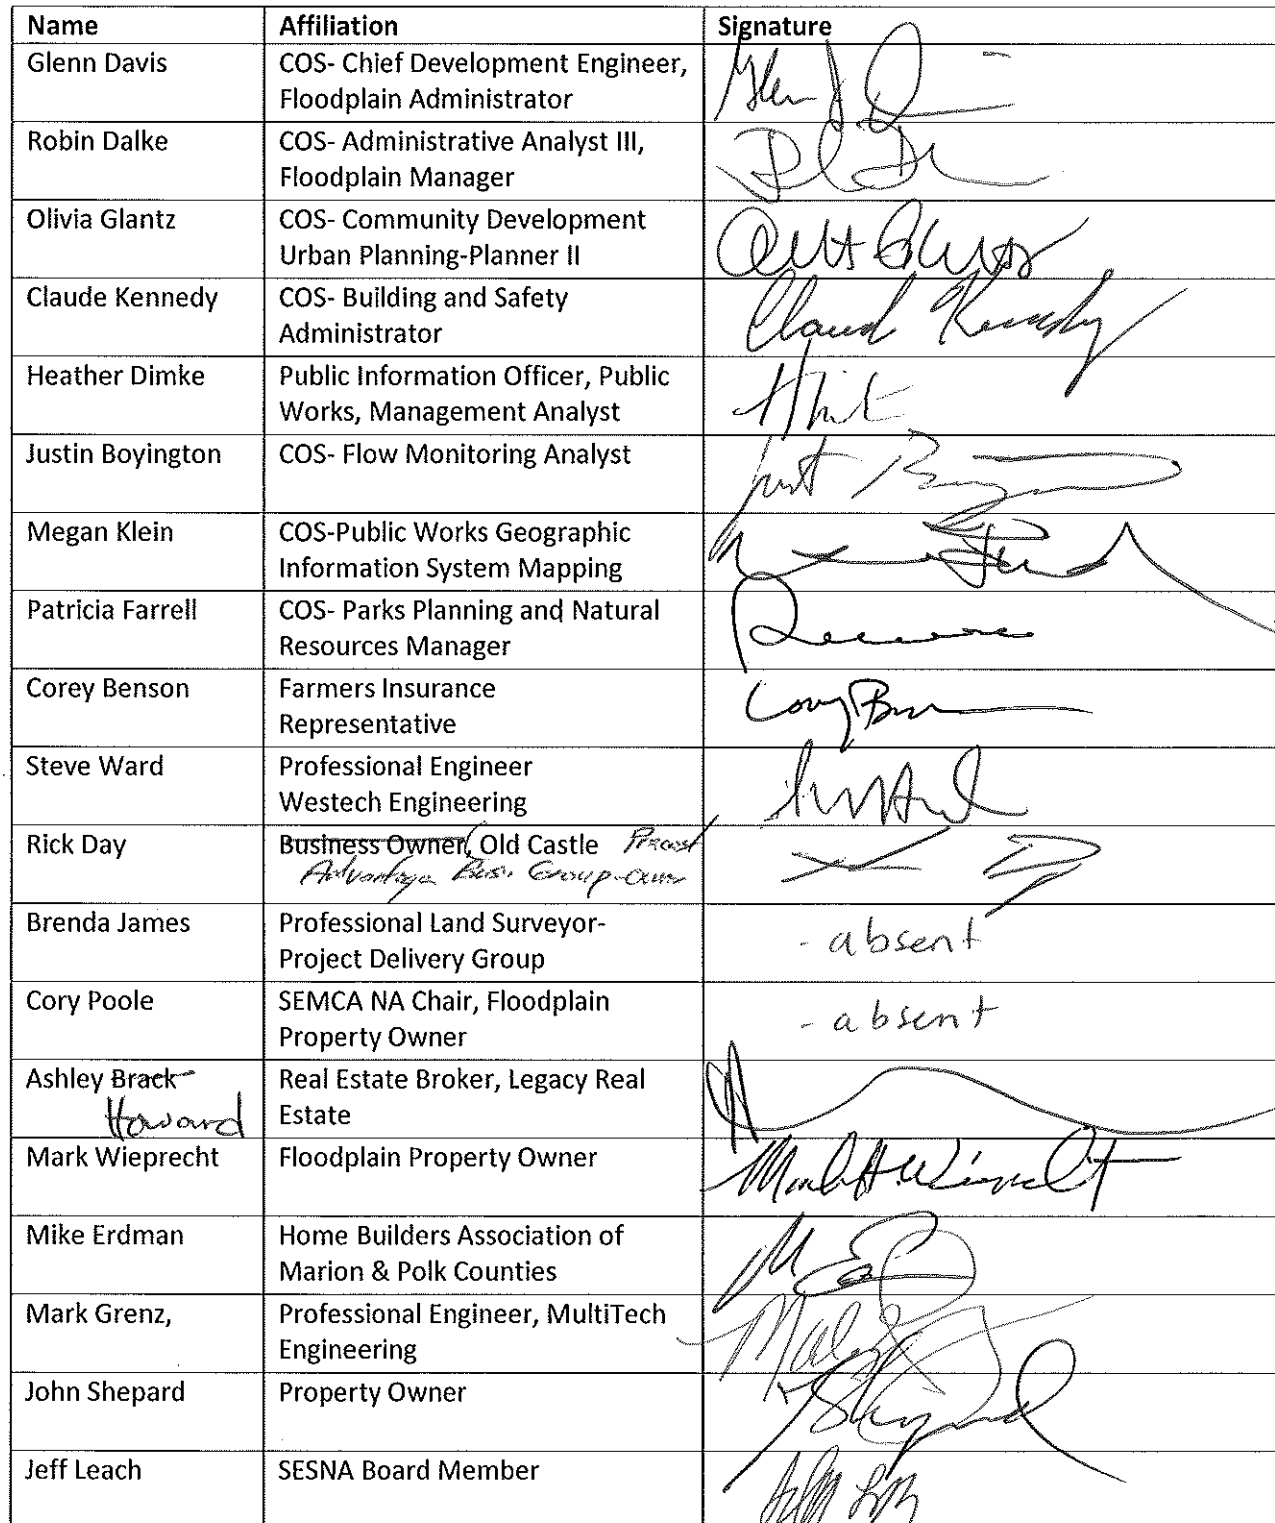 Name Affiliation Signature
Glenn Davis COS- Chief Development Engineer,
Floodplain Administrator
Robin Dalke COS- Administrative Analyst III,
Floodplain Manager
Olivia Glantz COS- Community Development
Urban Planning-Planner II
Claude Kennedy COS- Building and Safety
Administrator
Heather Dimke Public Information Officer, Public
Works, Management Analyst
Justin Boyington COS- Flow Monitoring Analyst
Megan Klein COS-Public Works Geographic
Information System Mapping
Patricia Farrell COS- Parks Planning and Natural
Resources Manager
Corey Benson Farmers Insurance
Representative
Steve Ward Professional Engineer
Westech Engineering
Rick Day Business Owner, Old Castle Precast
Advantage Busi. Group-owner
Brenda James Professional Land Surveyor- - absent
Project Delivery Group
Cory Poole SEMCA NA Chair, Floodplain - absent
Property Owner
Ashley Brack Real Estate Broker, Legacy Real
Howard Estate
Mark Wieprecht Floodplain Property Owner
Mike Erdman Home Builders Association of
Marion & Polk Counties
Mark Grenz, Professional Engineer, MultiTech
Engineering
John Shepard Property Owner
Jeff Leach SESNA Board Member